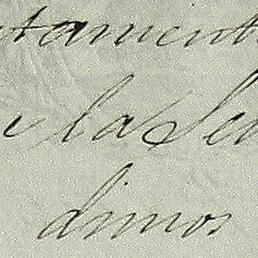 tamento
la Se
dimos